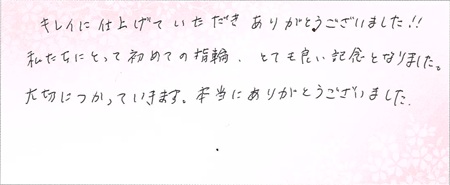 キレイに仕上げていただきありがとうございました!!
私たちにとって初めての指輪、とても良い記念となりました。
大切につかっていきます。本当にありがとうございました.